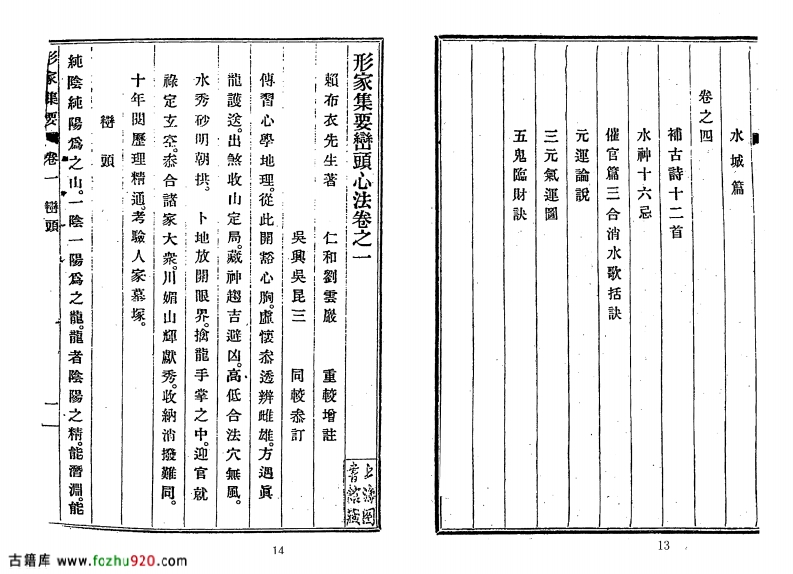 水城篇
卷之四
補古詩十二首
水神十六忌
催官篇三合消水歌括訣
元運論說
三元氣運圖
五鬼臨財訣
13
形家集要巒頭心法卷之一
賴布衣先生著 仁和劉雲巖 重較增註
吳興吳昆三 同較叅訂
傳習心學地理。從此開豁心胸。虛懷叅透辨雌雄。方遇眞
龍護送。出煞收山定局。藏神趨吉避凶。高低合法穴無風。
水秀砂明朝拱。卜地放開眼界。擒龍手掌之中。迎官就
祿定玄空。叅合諸家大衆。川媚山輝獻秀。收納消撥難同。
十年閱歷理精通。考驗人家墓塚。
巒頭
純陰純陽爲之山。一陰一陽爲之龍。龍者陰陽之精。能潛淵。能
形家集要 卷一 巒頭
14
古籍库 www.fozhu920.com